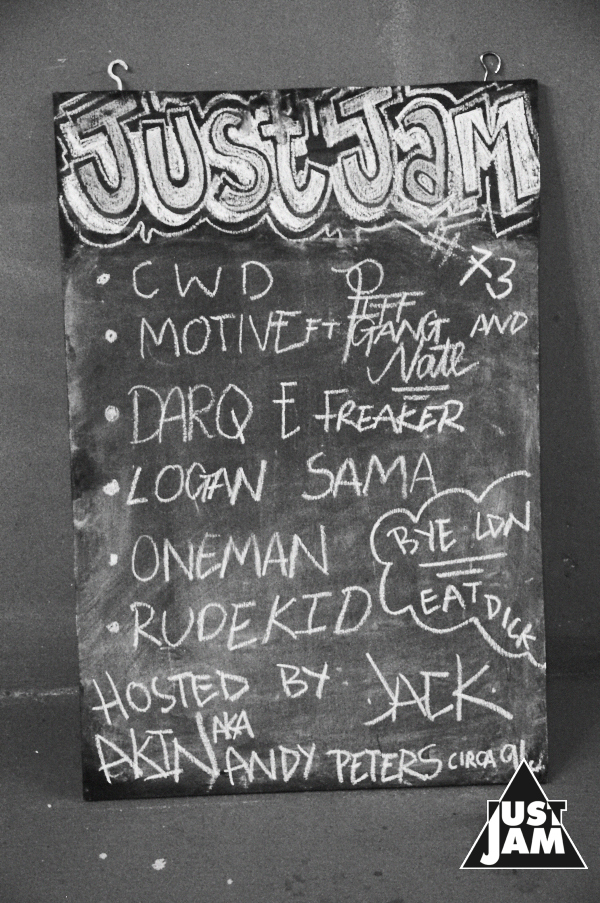 Just Jam
• CWD
x3
• MOTIVE FT JEFF GANG AND Nate
• DARQ E FREAKER
• LOGAN SAMA
• ONEMAN
BYE LDN
EAT DICK
• RUDEKID
HOSTED BY JACK.
AKIN AKA ANDY PETERS CIRCA
JUST
JAM